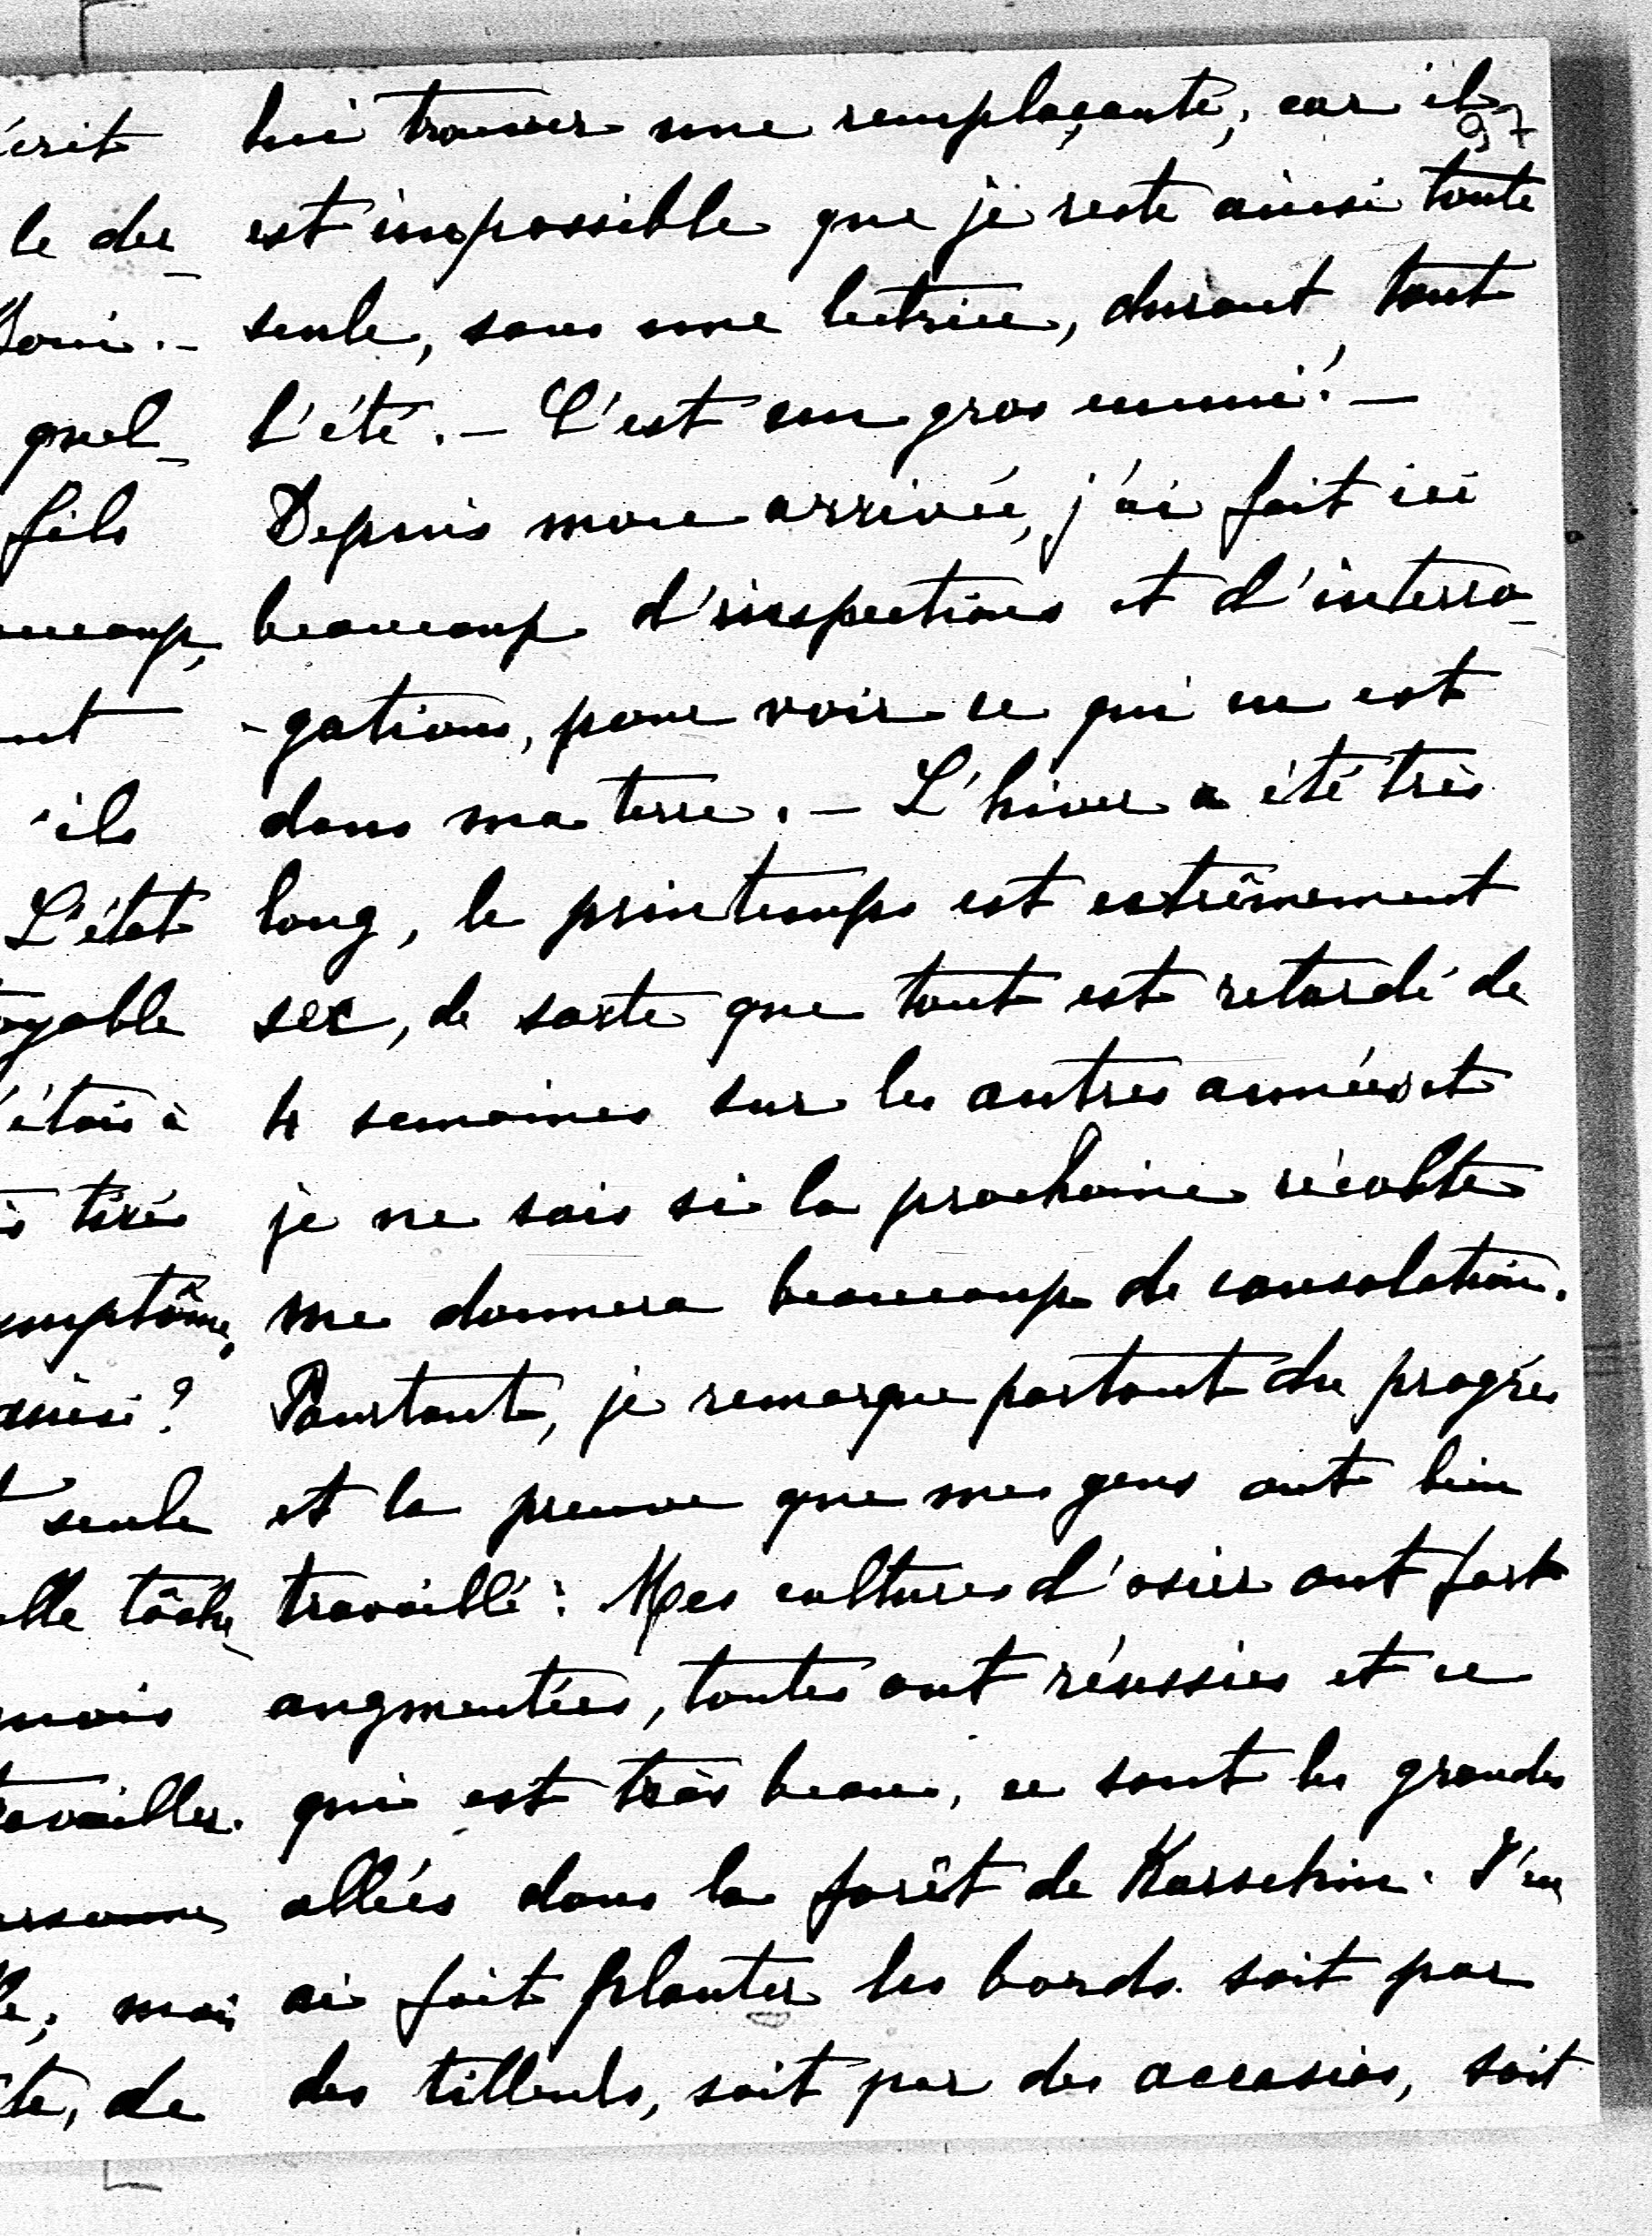 97
lui trouver une remplaçante; car il
est impossible que je reste ainsi toute
seule, sans une lectrice, durant tout
l'été. – C'est un gros ennui! –
Depuis mon arrivée, j'ai fait ici
beaucoup d'inspections et d'interro-
-gations, pour voir ce qui en est
dans ma terre. – L'hiver a été très
long, le printemps est extrêmement
sec, de sorte que tout est retardé de
4 semaines sur les autres années et
je ne sais si la prochaine récolte
me donnera beaucoup de consolation.
Pourtant, je remarque partout du progrès
et la preuve que mes gens ont bien
travaillé: Mes cultures d'osier ont fort
augmentées, toutes ont réussies et ce
qui est très beau, ce sont les grandes
allées dans la forêt de Karschin. J'en
ai fait planter les bords soit par
des tilleuls, soit par des accasias, soit
écrit
le der
quel-
fils
aucoup,
nt
'ils
L'état
oyable
'étais à
tirés
ymptôme,
ainsi?
seule
elle tâche
mais
travailler.
ersonne
le; mais
te, de